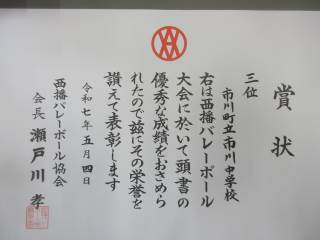 賞状
三位
市川町立市川中学校
右は西播バレーボール
大会に於いて頭書の
優秀な成績をおさめら
れたので茲にその栄誉を
讃えて表彰します
令和七年五月四日
西播バレーボール協会
会長 瀬戸川孝